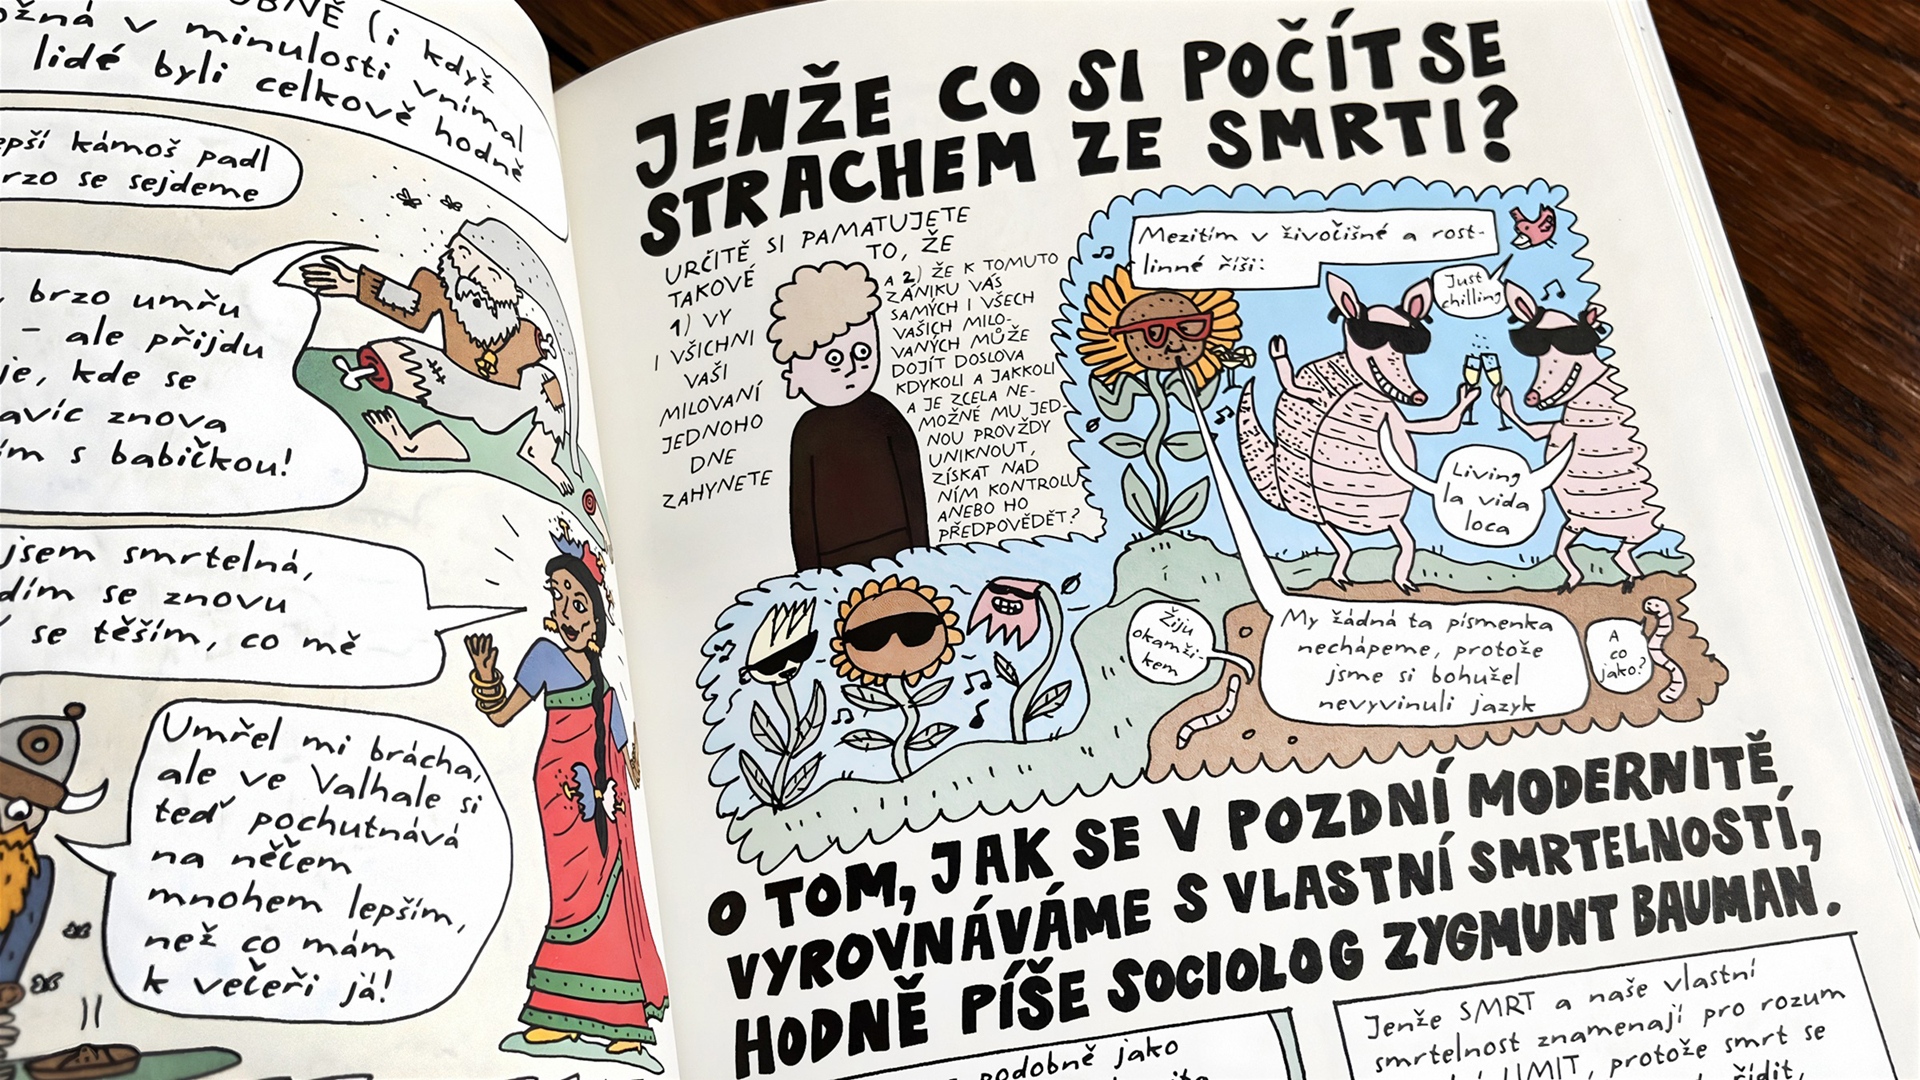 (i když
v minulosti vnímal
lidé byli celkově hodně
kámoš padl
se sejdeme
brzo umřu
– ale přijdu
kde se
znova
s babičkou!
jsem smrtelná,
se znovu
se těším, co mě
Umřel mi brácha,
ale ve Valhale si
teď pochutnává
na něčem
mnohem lepším,
než co mám
k večeři já!
JENŽE CO SI POČÍT SE
STRACHEM ZE SMRTI?
URČITĚ SI PAMATUJETE
TAKOVÉ
TO, ŽE
1) VY
I VŠICHNI
VAŠI
MILOVANÍ
JEDNOHO
DNE
ZAHYNETE
A 2) ŽE K TOMUTO
ZÁNIKU VÁS
SAMÝCH I VŠECH
VAŠICH MILO-
VANÝCH MŮŽE
DOJÍT DOSLOVA
KDYKOLI A JAKKOLI
A JE ZCELA NE-
MOŽNÉ MU JED-
NOU PROVŽDY
UNIKNOUT,
ZÍSKAT NAD
NÍM KONTROLU
ANEBO HO
PŘEDPOVĚDĚT?
Mezitím v živočišné a rost-
linné říši:
Just
chilling
Living
la vida
loca
Žiju
okamži-
kem
My žádná ta písmenka
nechápeme, protože
jsme si bohužel
nevyvinuli jazyk
A
co
jako?
O TOM, JAK SE V POZDNÍ MODERNITĚ
VYROVNÁVÁME S VLASTNÍ SMRTELNOSTÍ,
HODNĚ PÍŠE SOCIOLOG ZYGMUNT BAUMAN.
podobně jako
Jenže SMRT a naše vlastní
smrtelnost znamenají pro rozum
LIMIT, protože smrt se